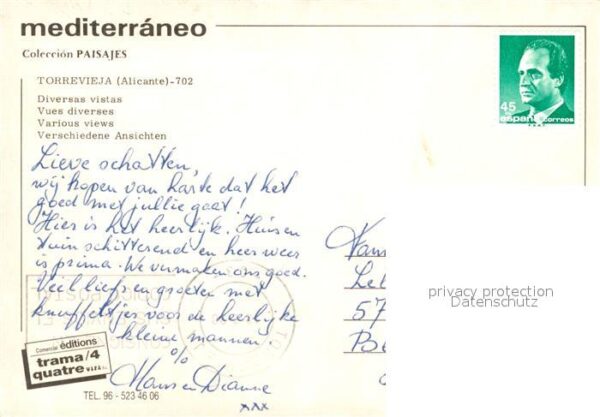 mediterráneo
Colección PAISAJES
TORREVIEJA (Alicante)-702
Diversas vistas
Vues diverses
Various views
Verschiedene Ansichten
45
españa correos
Lieve schatten,
wij hopen van harte dat het
goed met jullie gaat!
Hier is het heerlijk. Huis en
tuin schitterend en heer weer
is prima. We vermaken ons goed.
Veel liefs en groeten met
knuffeltjes voor de heerlijke
kleine mannen.
%
Hans en Dianne
xxx
Fam
Lel
57
privacy protection
Datenschutz
Comercial éditions
trama/4
quatre
TEL. 96 - 523 46 06